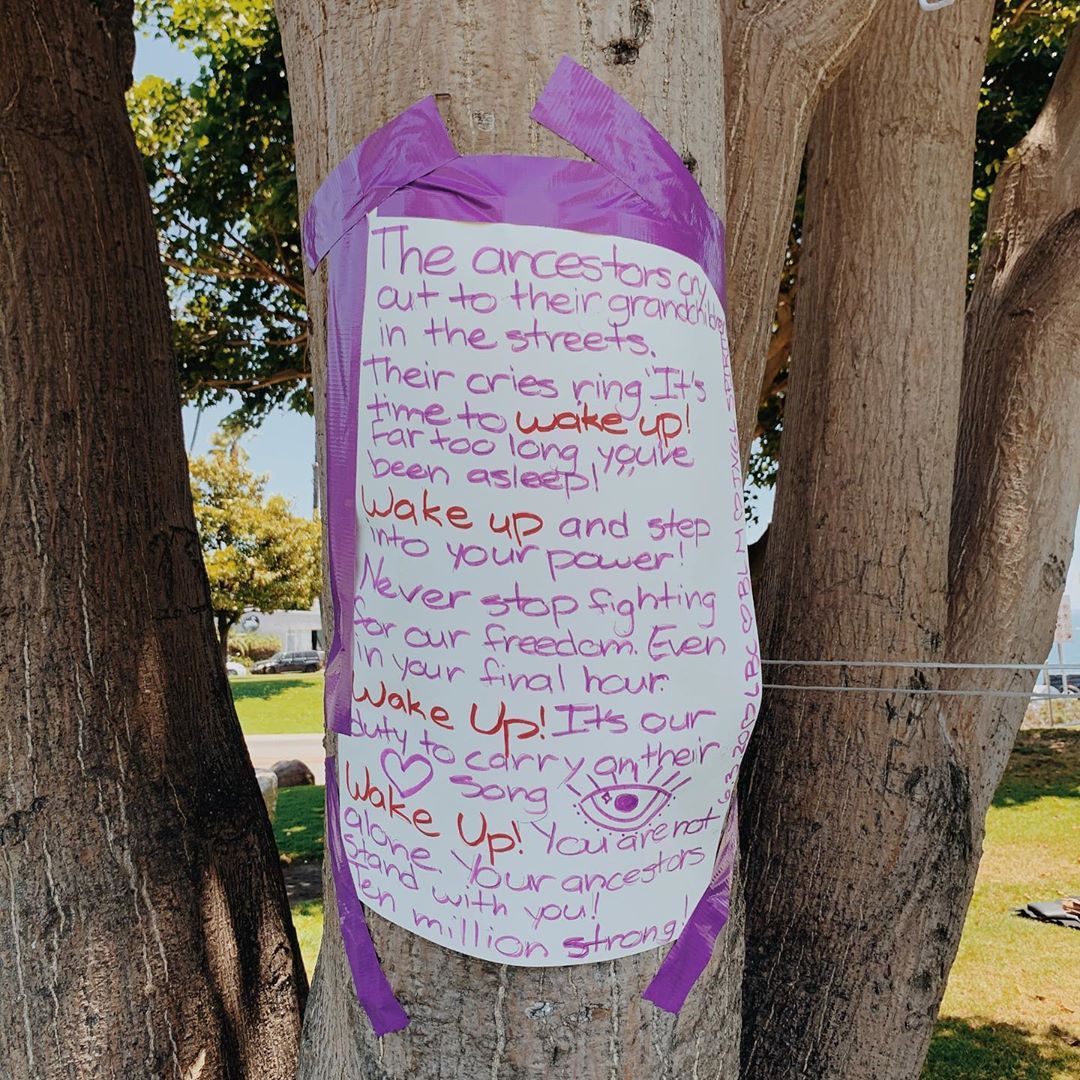 The ancestors cry
out to their grandchildren
in the streets.
Their cries ring "It's
time to wake up!
Far too long you've
been asleep!"
Wake up and step
into your power!
Never stop fighting
for our freedom. Even
in your final hour.
Wake Up! It's our
duty to carry on their
song
Wake Up! You are not
alone. Your ancestors
stand with you!
Ten million strong!
6.3.20 LBC BLM